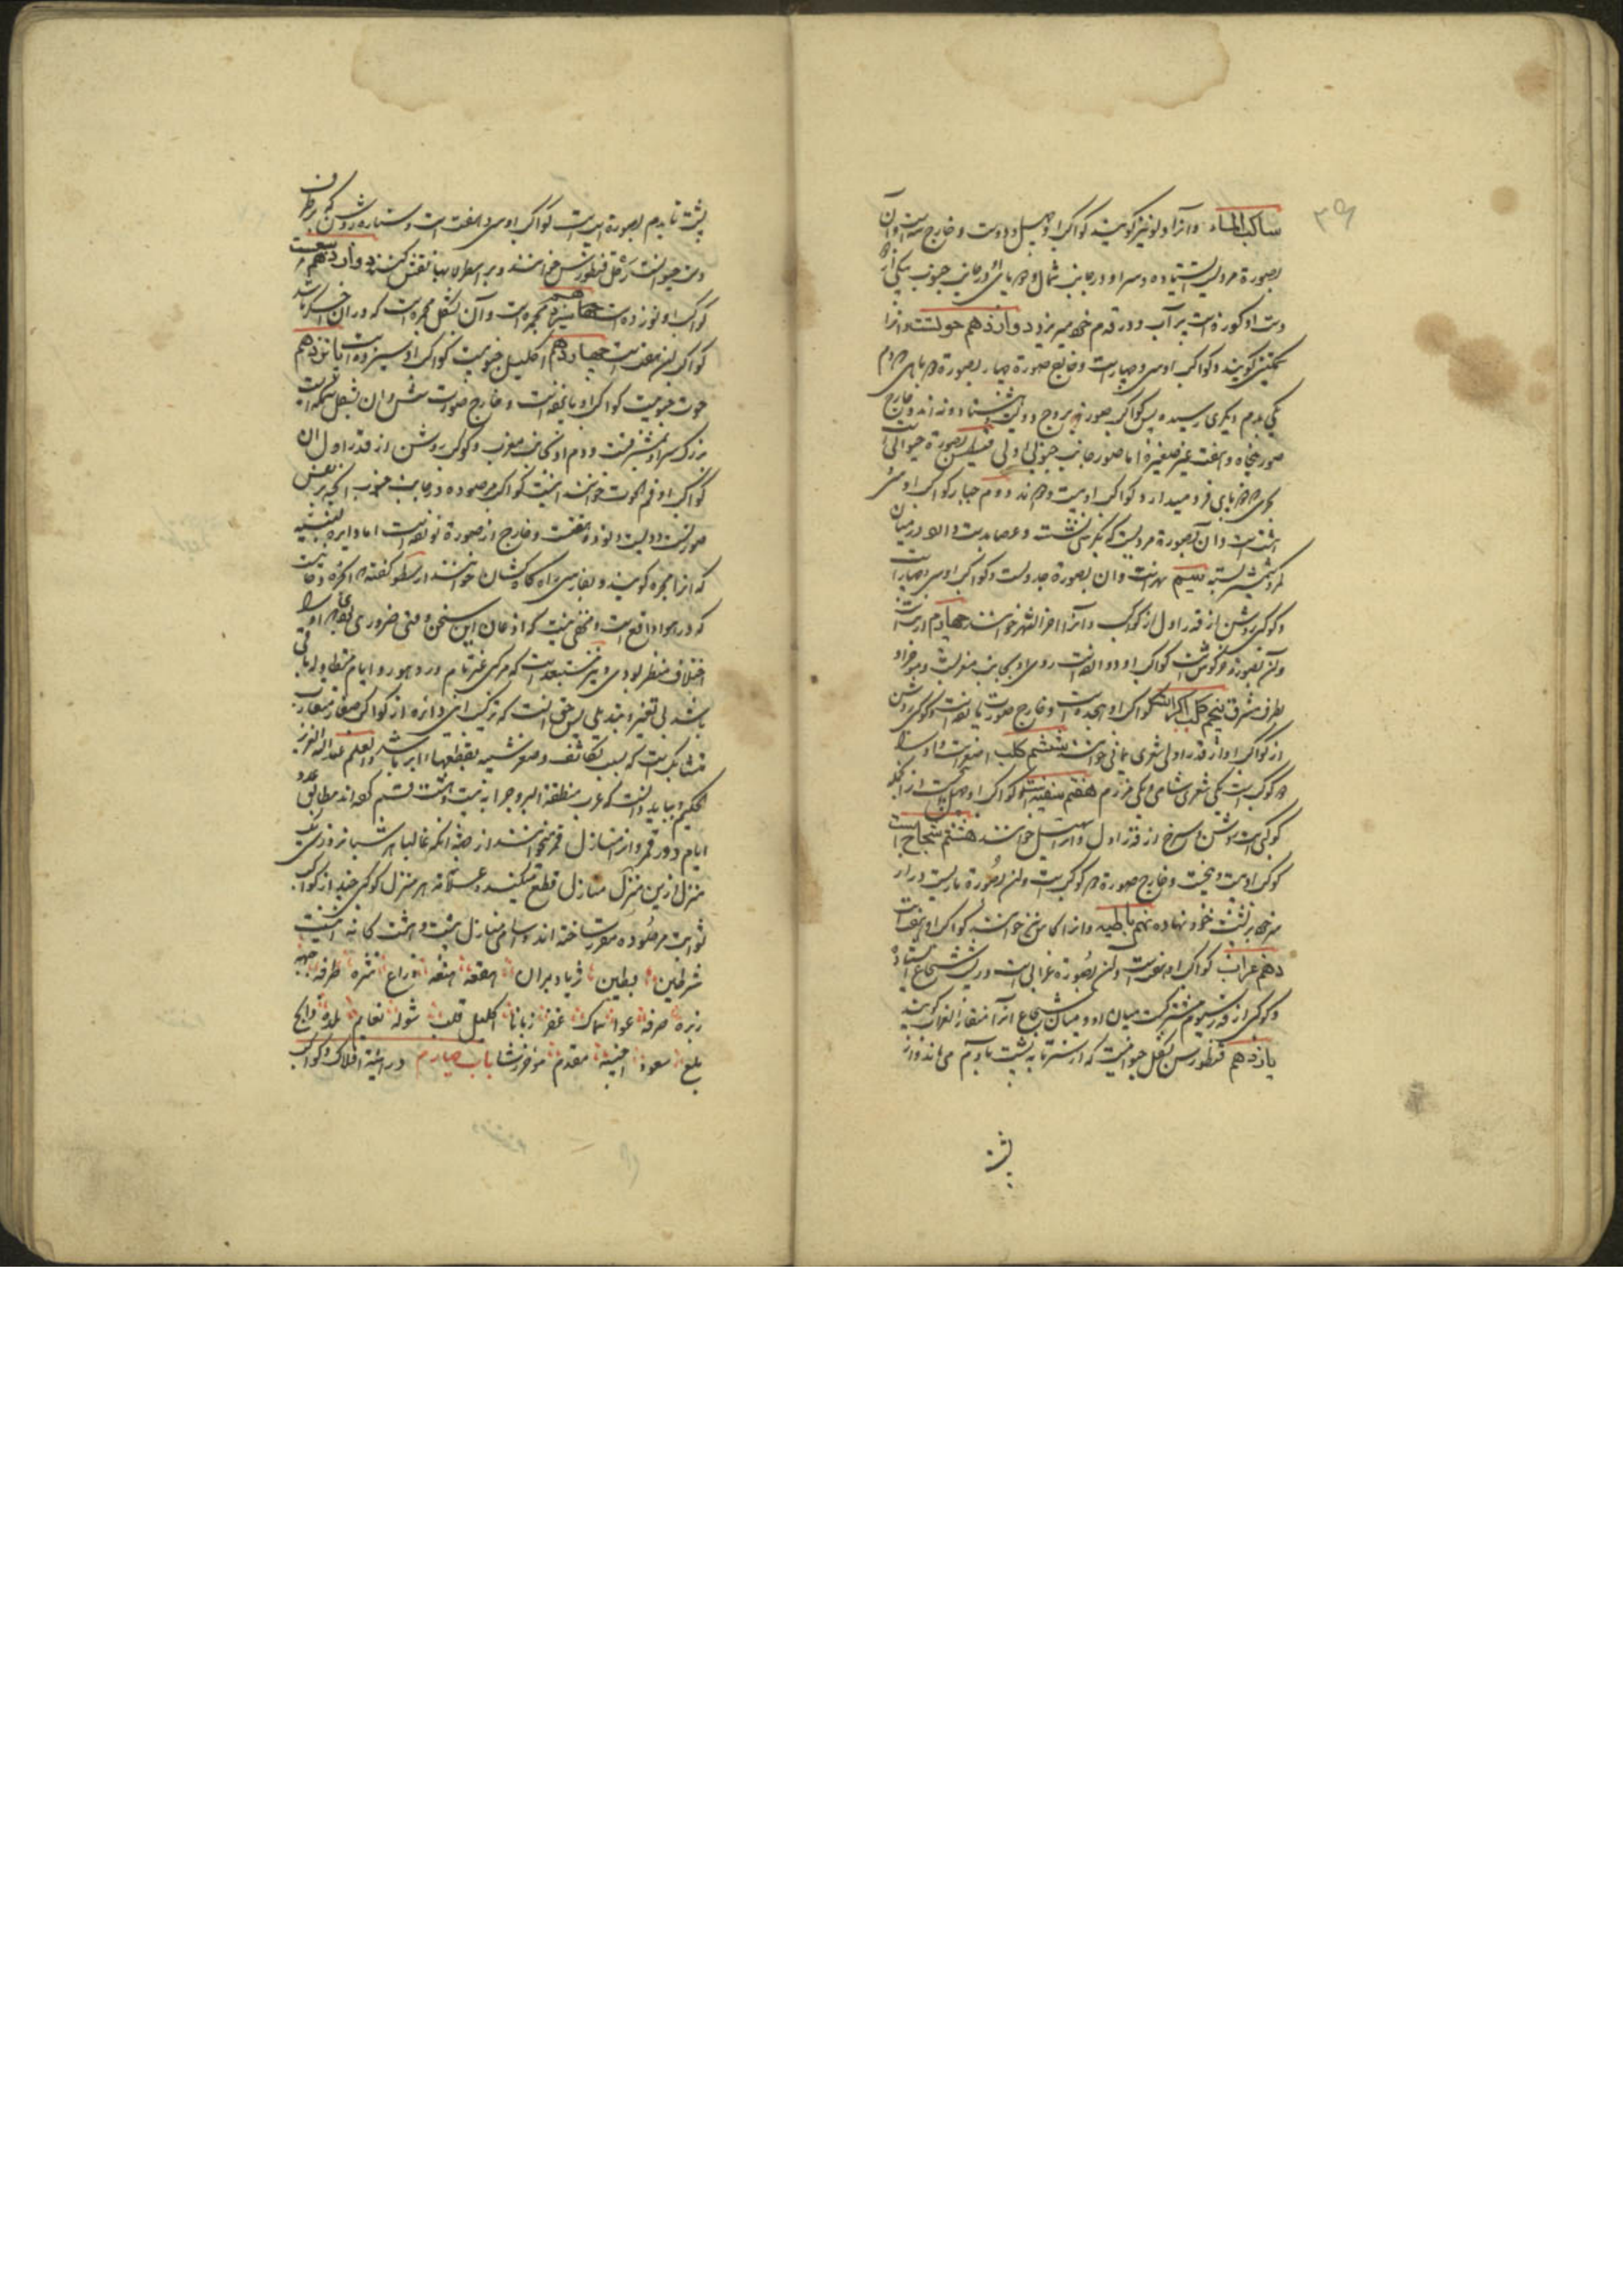 ساکب الماء وآنرا دلو نیز گویند کواکب او چهل و دوست و خارج سه است و آن
بصورة مردیست ایستاده و سر او در جانب شمال و پایش در جانب جنوب یکی از
دست او کوزه است پر آب و در قدم خود میریزد دوازدهم حوتست و آنرا
سمکتین گویند و کواکب او سی و چهارست و خارج صورة چهار بصورة دو ماهی دم
یکی بدم دیگری رسیده پس کواکب صور بروج دویست هشتاد و نه اند و خارج
صور پنجاه و هفت غیر صغیره اما صور جانب جنوبی اولی قیطس بصورة حیوانی
دو پای فرو میدارد و کواکب او بیست و دو اند دوم جبار کواکب او سی
هشت است و آن بصورة مردیست که بکرسی نشسته و عصا بدست و در میان
کمر و شمشیر بسته سیم نهرست و آن بصورة جدولست و کواکب او سی و چهار است
و کوکبی روشن از قدر اول از کواکب و آنرا آخر النهر خوانند چهارم ارنبست
و آن بصورة خرگوشست کواکب او دوازده است روی او بجانب مغربست و مؤخر او
بطرف مشرق پنجم کلب اکبر است کواکب او هجده است و خارج صورت یازده است و کوکبی روشن
از کواکب او از قدر اول شعری یمانی خوانند ششم کلب اصغرست و او را
دو کوکب است یکی شعری شامی و یکی مرزم هفتم سفینه است کواکب او چهل و پنج است از آنجمله
کوکبی است روشن و سرخ از قدر اول و آنرا سهیل خوانند هشتم شجاع است
کوکب او بیست و پنجست و خارج صورة دو کوکب است و آن بصورة ماریست دراز
سر خود بر پشت خود نهاده نهم باطیه و آنرا کاس نیز خوانند کواکب او هفت است
دهم غراب کواکب او هفت است و آن بصورة غرابی است و بر پشت شجاع ایستاده
و کوکبی از قدر سیوم مشترکست میان او و میان شجاع آنرا منقار الغراب گویند
یازدهم قنطورس بشکل حیوانیست که از سر تا به پشت بآدم می ماند و از
پشت
پشت تا بدم بصورة اسب است کواکب او سی و هفت است و ستاره روشن که بر طرف
دست حیوانست رجل قنطورس خوانند و بر اسطرلابها نقش کنند دوازدهم سبعست
کواکب او نوزده است سیزدهم مجمره است و آن بشکل مجمره است که در آن اخگر باشد
کواکب آن هفت است چهاردهم اکلیل جنوبیست کواکب او سیزده است پانزدهم
حوت جنوبیست کواکب او یازده است و خارج صورت شش و آن بشکل سمکه ایست
بزرگ سر او بمشرقست و دم او بجانب مغرب و کوکب روشن از قدر اول آن
کواکب او فم الحوت خوانند اینست کواکب مرصوده در جانب جنوب آنچه بر نفس
صورتست دویست و نود و هفت و خارج از صورة نوزده است اما دایره لبنیه
که آنرا مجره گویند و بفارسی راه کاه کشان خوانند ارسطو گفته که آن بخره دخانیست
که در هوا واقع است و مخفی نیست که اذعان این سخن و نفی ضروری بقاء او را
اختلاف منظر بودی و نیز مستبعد است که مرکبی غیر تام در دهور و ایام متطاوله باقی
باشد بی تغییر و تبدیلی پس حق آنست که ترکیب این دائره از کواکب صغار متقارب
متشابک است که بسبب تکاثف و صغر شبیه بقطعهاء ابر باشد و العلم عند الله العزیز
الحکیم و بباید دانست که عرب منطقة البروج را به بیست و هشت قسم کرده اند مطابق عدد
ایام دور قمر و آنرا منازل قمر خوانند از جهة آنکه غالبا هر شبانروزی یک
منزل ازین منزل منازل قطع میکند و علامة هر منزل کوکبی چند از کواکب
ثوابت مرصوده مقرر ساخته اند و اسامی منازل بیست و هشت گانه اینست
شرطین بطین ثریا دبران هقعه هنعه ذراع نثره طرفه جبهه
زبره صرفه عوا سماک غفر زبانا اکلیل قلب شوله نعایم بلده ذابح
بلع سعود اخبیه مقدم مؤخر رشا باب چهارم در اشیة افلاک و کواکب